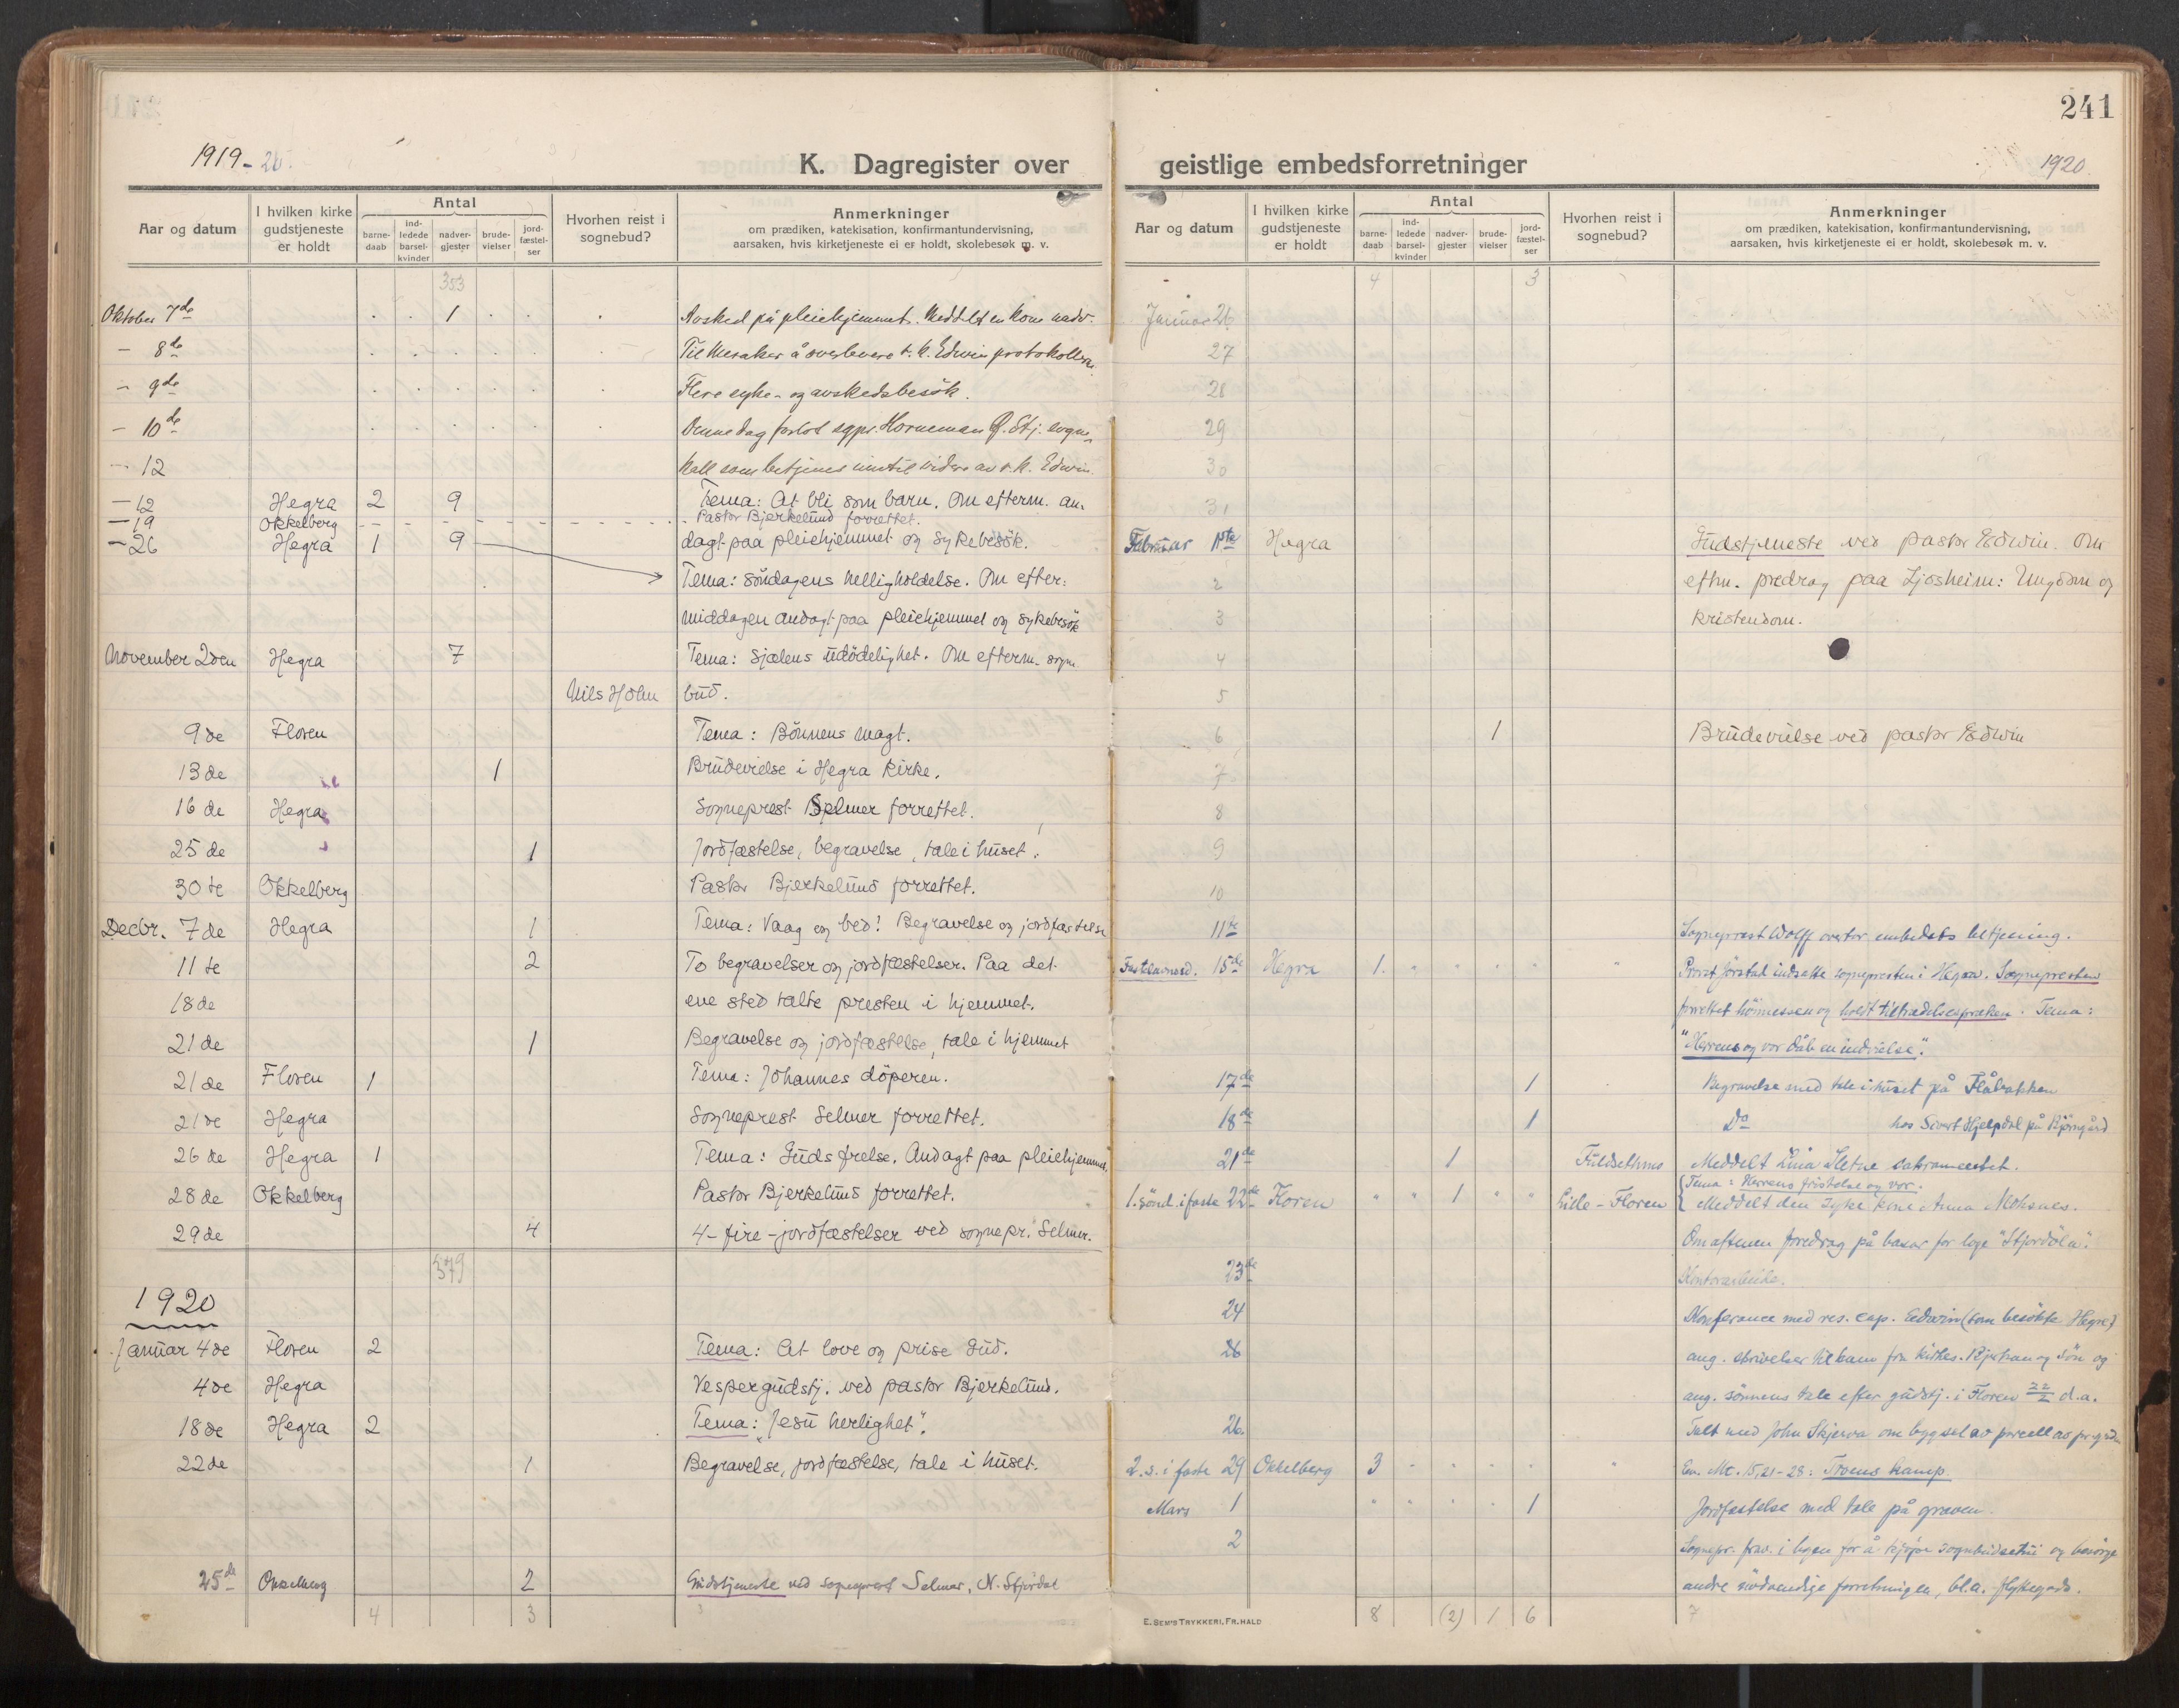 241
1919-20.
K. Dagregister over
geistlige embedsforretninger
1920.
Aar og datum
I hvilken kirke gudstjeneste er holdt
Antal
barne-daab
ind-ledede barsel-kvinder
nadver-gjester
brude-vielser
jord-fæstel-ser
Hvorhen reist i sognebud?
Anmerkninger
om prædiken, katekisation, konfirmantundervisning,
aarsaken, hvis kirketjeneste ei er holdt, skolebesøk m. v.
353
Oktober 7de 1 Avsked på pleiehjemmet. Meddelt en kone nadv.
- 8de Til Meraker å overlevere r. k. Edwin protokollen.
- 9de Flere syke- og avskedsbesök.
- 10de Denne dag forlot sgpr. Horneman Ö. Stj. sogne-
- 12 kall som betjenes inntil videre av r. k. Edwin.
- 12 Hegra 2 9 Tema: At bli som barn. Om efterm. an-
- 19 Okkelberg Pastor Bjerkelund forrettet.
- 26 Hegra 1 9 dagt paa pleiehjemmet og sykebesök.
Tema: Söndagens helligholdelse. Om efter:
middagen andagt paa pleiehjemmet og sykebesök
November 2den Hegra 7 Tema: Sjælens udödelighet. Om efterm. sogne
Nils Holm bud.
9de Floren Tema: Bönnens magt.
13de 1 Brudevielse i Hegra kirke.
16de Hegra Sogneprest Selmer forrettet.
25de 1 Jordfæstelse, begravelse, tale i huset.
30te Okkelberg Pastor Bjerkelund forrettet.
Decbr. 7de Hegra 1 Tema: Vaag og bed! Begravelse og jordfæstelse
11te 2 To begravelser og jordfæstelser. Paa det
18de ene sted talte presten i hjemmet.
21de 1 Begravelse og jordfæstelse, tale i hjemmet
21de Floren 1 Tema: Johannes döperen.
21de Hegra Sogneprest Selmer forrettet.
26de Hegra 1 Tema: Guds frelse. Andagt paa pleiehjemmet.
28de Okkelberg Pastor Bjerkelund forrettet.
29de 4 4-fire-jordfæstelser ved sognepr. Selmer.
379
1920
Januar 4de Floren 2 Tema: At love og prise Gud.
4de Hegra Vespergudstj. ved pastor Bjerkelund.
18de Hegra 2 Tema: "Jesu herlighet".
22de 1 Begravelse, jordfæstelse, tale i huset.
25de Okkelberg 2 Gudstjeneste ved sogneprest Selmer, N. Stjördal
4 3
Aar og datum
I hvilken kirke gudstjeneste er holdt
Antal
barne-daab
ind-ledede barsel-kvinder
nadver-gjester
brude-vielser
jord-fæstel-ser
Hvorhen reist i sognebud?
Anmerkninger
om prædiken, katekisation, konfirmantundervisning,
aarsaken, hvis kirketjeneste ei er holdt, skolebesøk m. v.
4 3
Januar 26
27
28
29
30
31
Februar 1ste Hegra Gudstjeneste ved pastor Edwin. Om
2 eftm. foredrag paa Ljosheim: Ungdom og
3 kristendom.
4
5
6 1 Brudevielse ved pastor Edwin
7
8
9
10
11te Sogneprest Wolff overtar embedets betjening.
Fastelavnsd. 15de Hegra 1. Prost Jörstad indsette sognepresten i Hegra. Sognepresten
forrettet höimessen og holdt tiltrædelsespræken. Tema:
"Herrens og vor dåb en indvielse".
17de 1 Begravelse med tale i huset på Flåbakken
18de 1 Do hos Sivert Hjelpdal på Björngård
21de 1 Fuldsethus Meddelt Lina Sletne sakramentet.
1. sönd. i faste 22de Floren 1 Lille-Floren Tema: Herrens fristelse og vor.
Meddelt den syke kone Anna Moksnes.
Om aftenen foredrag på basar for loge "Stjördöla".
23de Kontorarbeide.
24 Konferance med res. cap. Edwin (som besökte Hegra)
26 ang. skrivelser til ham fra kirkes. og sön og
ang. sönnens tale efter gudstj. i Floren 22/2 d.a.
26. Talt med John Skjerva om bygsel av parcell av
2. s. i faste 29 Okkelberg 3 Ev. Mt. 15,21-28: Troens kamp.
Mars 1 1 Jordfæstelse med tale på graven.
2 Sognepr. frav. i byen for å kjöpe sognebudsetui og besörge
andre nödvendige forretninger, bl.a.
8 (2) 1 6 7
E. SEM'S TRYKKERI, FR.HALD